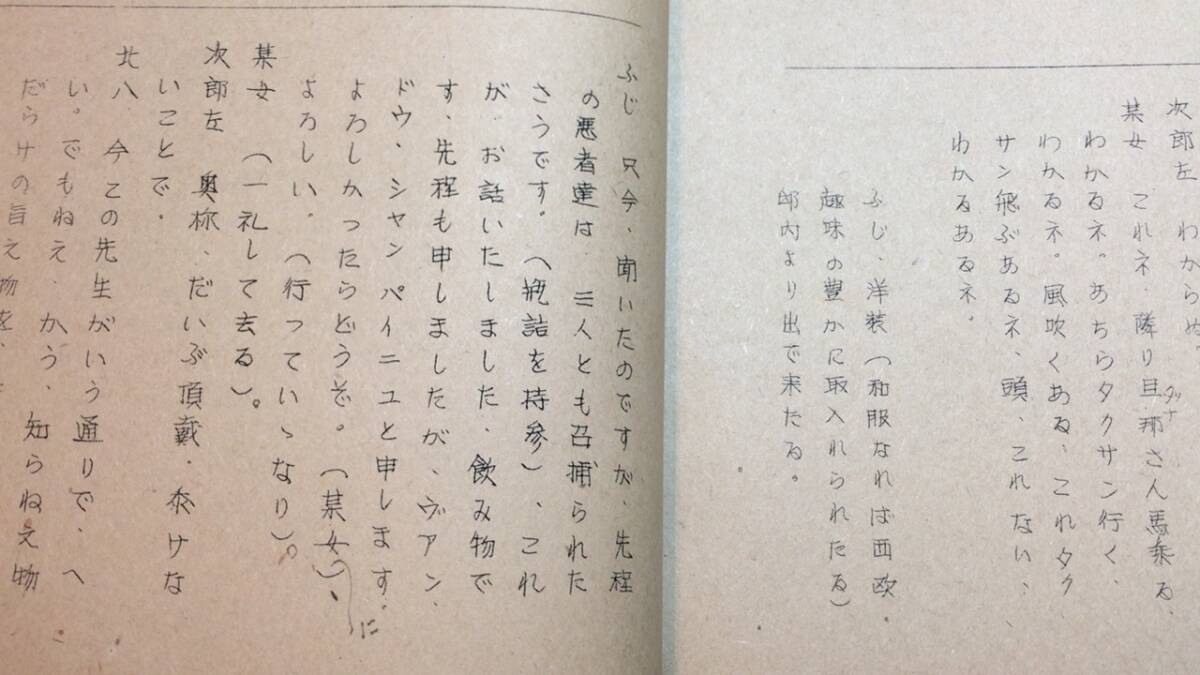 次郎左　わからぬ、
某女　これネ、隣り旦那さん馬乗る、
ダンナ
わかるネ。あちらタクサン行く、
わかるネ。風吹くある、これタク
サン飛ぶあるネ、頭、これない、
わかるあるネ。
ふじ、洋装（和服なれば西欧
趣味の豊かに取入れられたる）
邸内より出で来たる。
ふじ　只今、聞いたのですが、先程
の悪者達は、三人とも召捕られた
さうです。（瓶詰を持参）、これ
が、お話いたしました、飲み物で
す、先程も申しましたが、ヴアン、
ドウ、シャンパイニユと申します。
よろしかったらどうぞ。（某女）、
に
よろしい、（行っていゝなり）。
某女　（一礼して去る）。
次郎左　奥様、だいぶ頂戴、忝けな
いことで、
北八　今この先生がいう通りで、へ
い。でもねえ、かう、知らねえ物
だらけの旨え物を、